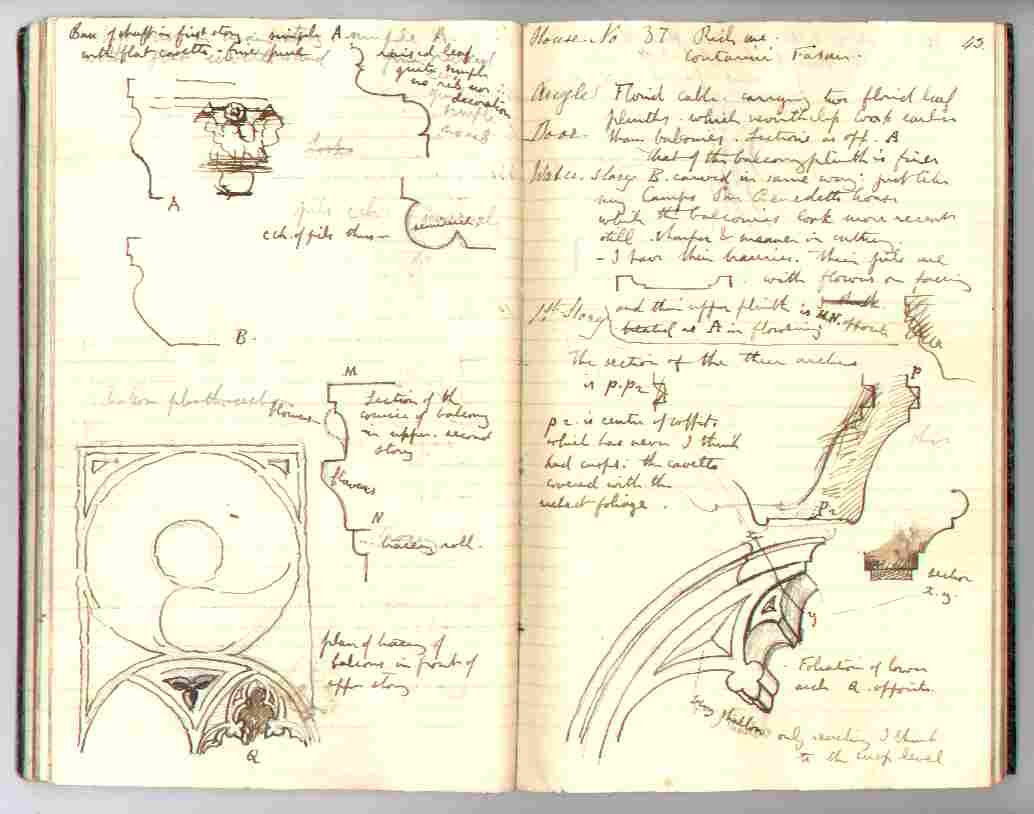 Base of shaft in first story simply A
with flat cavetto - fine
raised leaf
quite simple
no rib nor
decoration
A
of pils thus -
B.
M
Section of the
cornice of balcony
in upper. second
story
flowers
flowers
N
tracery roll.
plan of tracery of
balcony in front of
upper story
Q
House No 37 Rich one.
43.
Containing
Angle. Florid cable. carrying two florid leaf
plinths. which look earlier
Door. than balconies. Sections as opp. A
that of the balcony plinth is finer
Water. story B. carved in same way: just like
my Campo San Benedetto house
while the balconies look more recent
still. sharper & meaner in cutting.
- I have their traceries. Their pils are
. with flowers on facing
1st Story and their upper plinth is
M.N. opposite
treated as A in flowering
The section of the their arches
is p. p2
P
p 2. is centre of soffit.
which has never I think
had cusps: the cavetto
covered with the
foliage.
P2
section
x. y.
y
Foliation of lower
arch Q. opposite.
very shallow
only reaching I think
to the cusp level